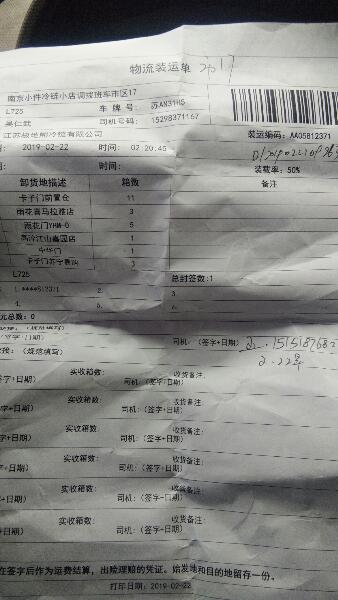 物流装运单 2017
南京小件冷链小店调拨班车市区17
L725 车 牌 号: 苏AN31H5
吴仁武 司机号码: 15298371167
江苏极地熊冷链有限公司 装运编码: AA05812371
期: 2019-02-22 时间: 02:20:45
时间: 装载率: 50%
卸货地描述 箱数 备注
卡子门前置仓 11
雨花喜马拉雅店 3
雨花门YHM-0 5
1
1
3
L725 总封签数:1
1. ****512371 2. 3.
4. 5. 6.
元总数: 0
(签字+日期) 司机: (签字+日期)
(规格填写) 2.22号
签字+日期) 实收箱数: 司机: (签字+日期) 收货备注:
签字+日期) 实收箱数: 司机: (签字+日期) 收货备注:
签字+日期) 实收箱数: 司机: (签字+日期) 收货备注:
签字+日期) 实收箱数: 司机: (签字+日期) 收货备注:
签字+日期) 实收箱数: 司机: (签字+日期) 收货备注:
在签字后作为运费结算，出险理赔的凭证。始发地和目的地留存一份。
打印日期: 2019-02-22